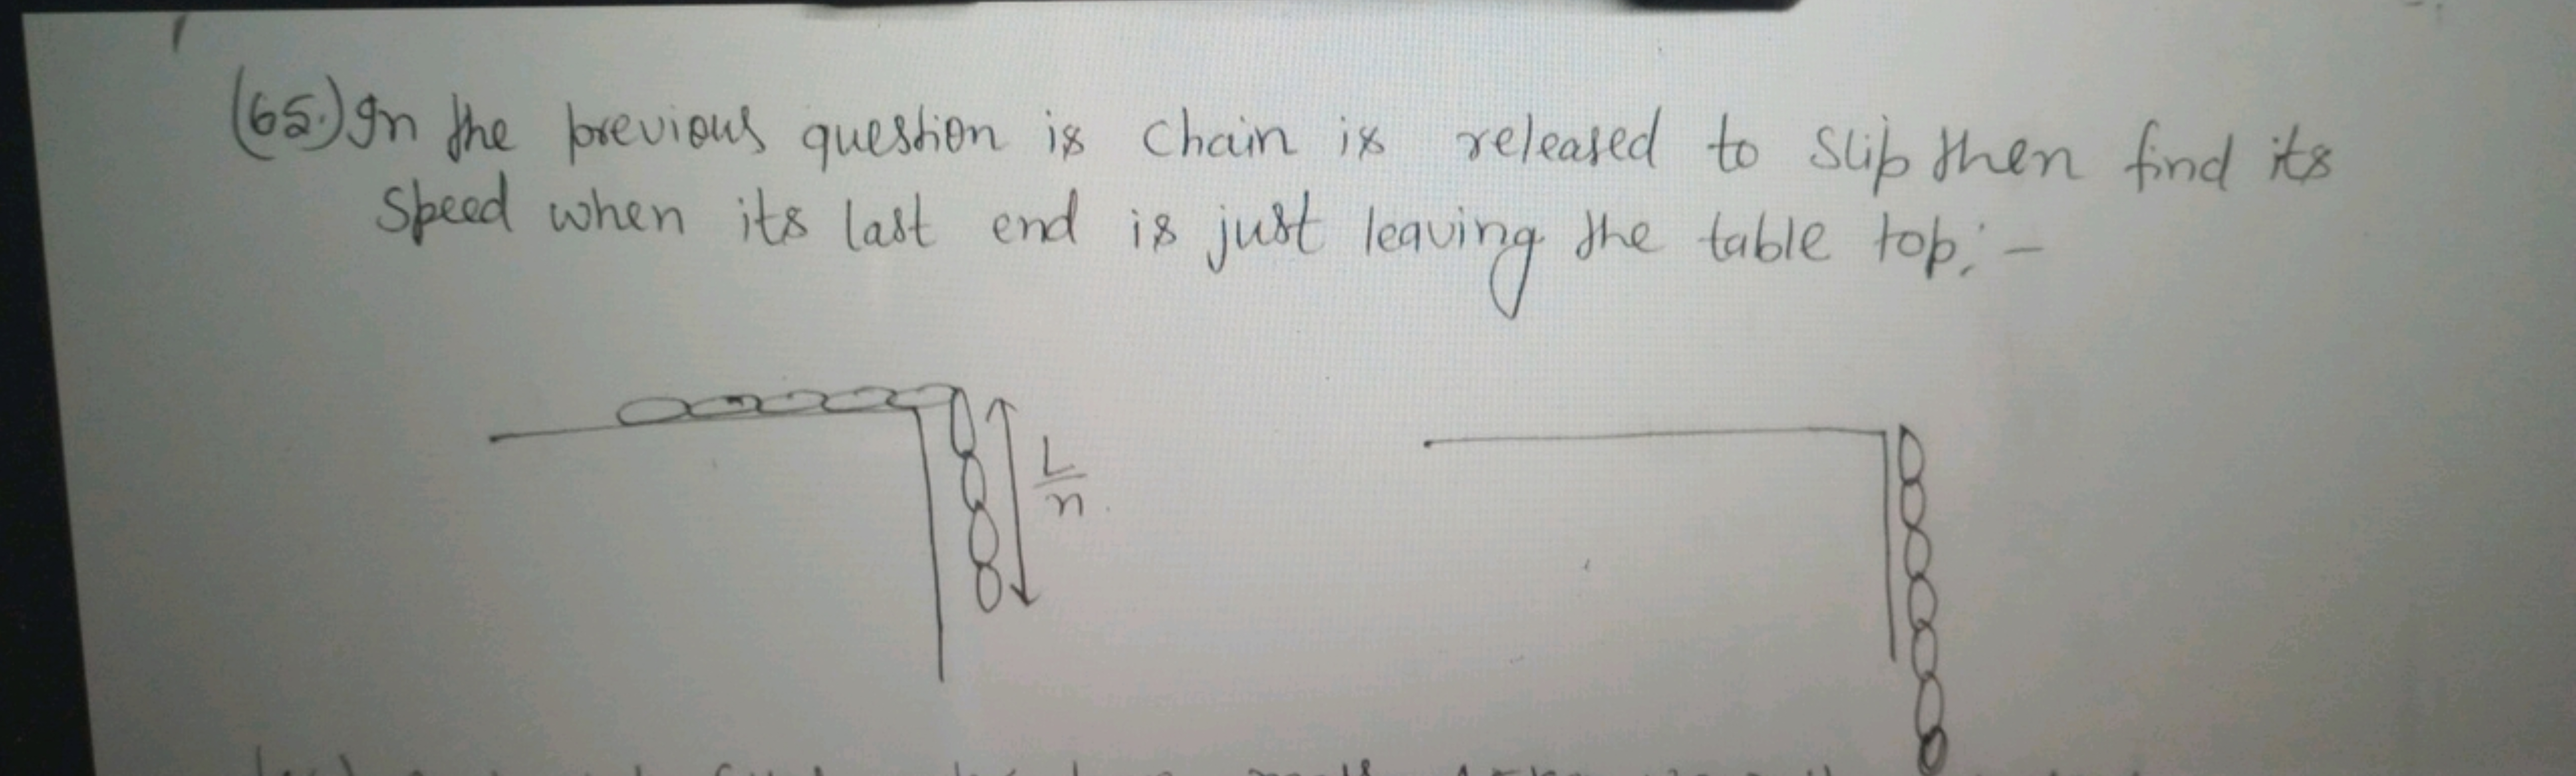 (65.) In the previous question is chain is released to slip then find its
speed when its last end is just leaving the table top: -
L
n